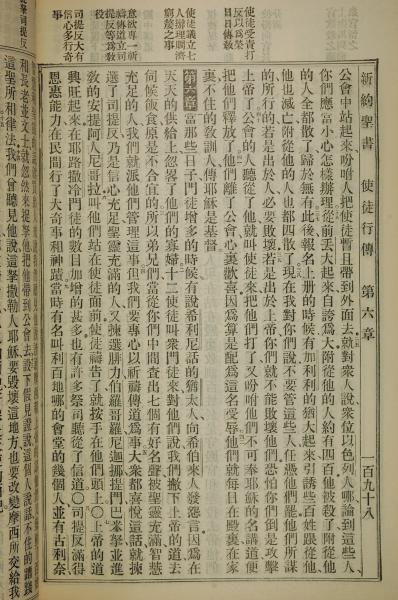 新約聖書 使徒行傳 第六章 一百九十八
使徒受責打
反以爲榮
日日傳敎
使徒議立七
人辦理賙濟
窮乏之事
意欲專一祈
禱傳道立司
提反等爲執
役
司提反大有
信心多行奇
事
公會中站起來吩咐人把使徒暫且帶到外面去就對衆人說衆位以色列人哪論到這些人
你們應當小心怎樣辦理從前丟大起來自誇爲大附從他的人約有四百他被殺了附從他
的人全都散了歸於無有此後報名上册的時候有加利利的猶大起來引誘些百姓跟從他
他也滅亡附從他的人也都四散了現在我對你們說不要管這些人任憑他們罷他們所謀
的所行的若是出於人必要敗壞若是出於上帝你們就不能敗壞他們恐怕你們倒是攻擊
上帝了公會的人聽從了他就叫使徒來把他們打了又吩咐他們不可奉耶穌的名講道便
把他們釋放了他們離了公會心裏歡喜因爲算是配爲這名受辱他們就每日在殿裏在家
裏不住的敎訓人傳耶穌是基督
第六章 當那些日子門徒增多的時候有說希利尼話的猶太人向希伯來人發怨言因爲在
天天的供給上忽畧了他們的寡婦十二使徒叫衆門徒來對他們說我們撇下上帝的道去
伺候飯食原是不合宜的所以弟兄們當從你們中間查出七個有好名聲被聖靈充滿智慧
充足的人我們就派他們管理這事但我們要專心以祈禱傳道爲事大衆都喜悅這話就揀
選了司提反乃是信心充足聖靈充滿的人又揀選腓力伯羅哥羅尼迦挪提門巴米拏並進
敎的安提阿人尼哥拉叫他們站在使徒面前使徒禱告了就按手在他們頭上〇上帝的道
興旺起來在耶路撒冷門徒的數目加增的甚多也有許多祭司聽從了信道〇司提反滿得
恩惠能力在民間行了大奇事和神蹟當時有名叫利百地哪的會堂的幾個人並有古利奈
和長老並文士就忽然來捉拏他把他帶到公會去設下假見證說這個人說話不住的蹧踐
這聖所和律法我們曾聽見他說這拏撒勒人耶穌要毀壞這地方也要改變摩西所交給我